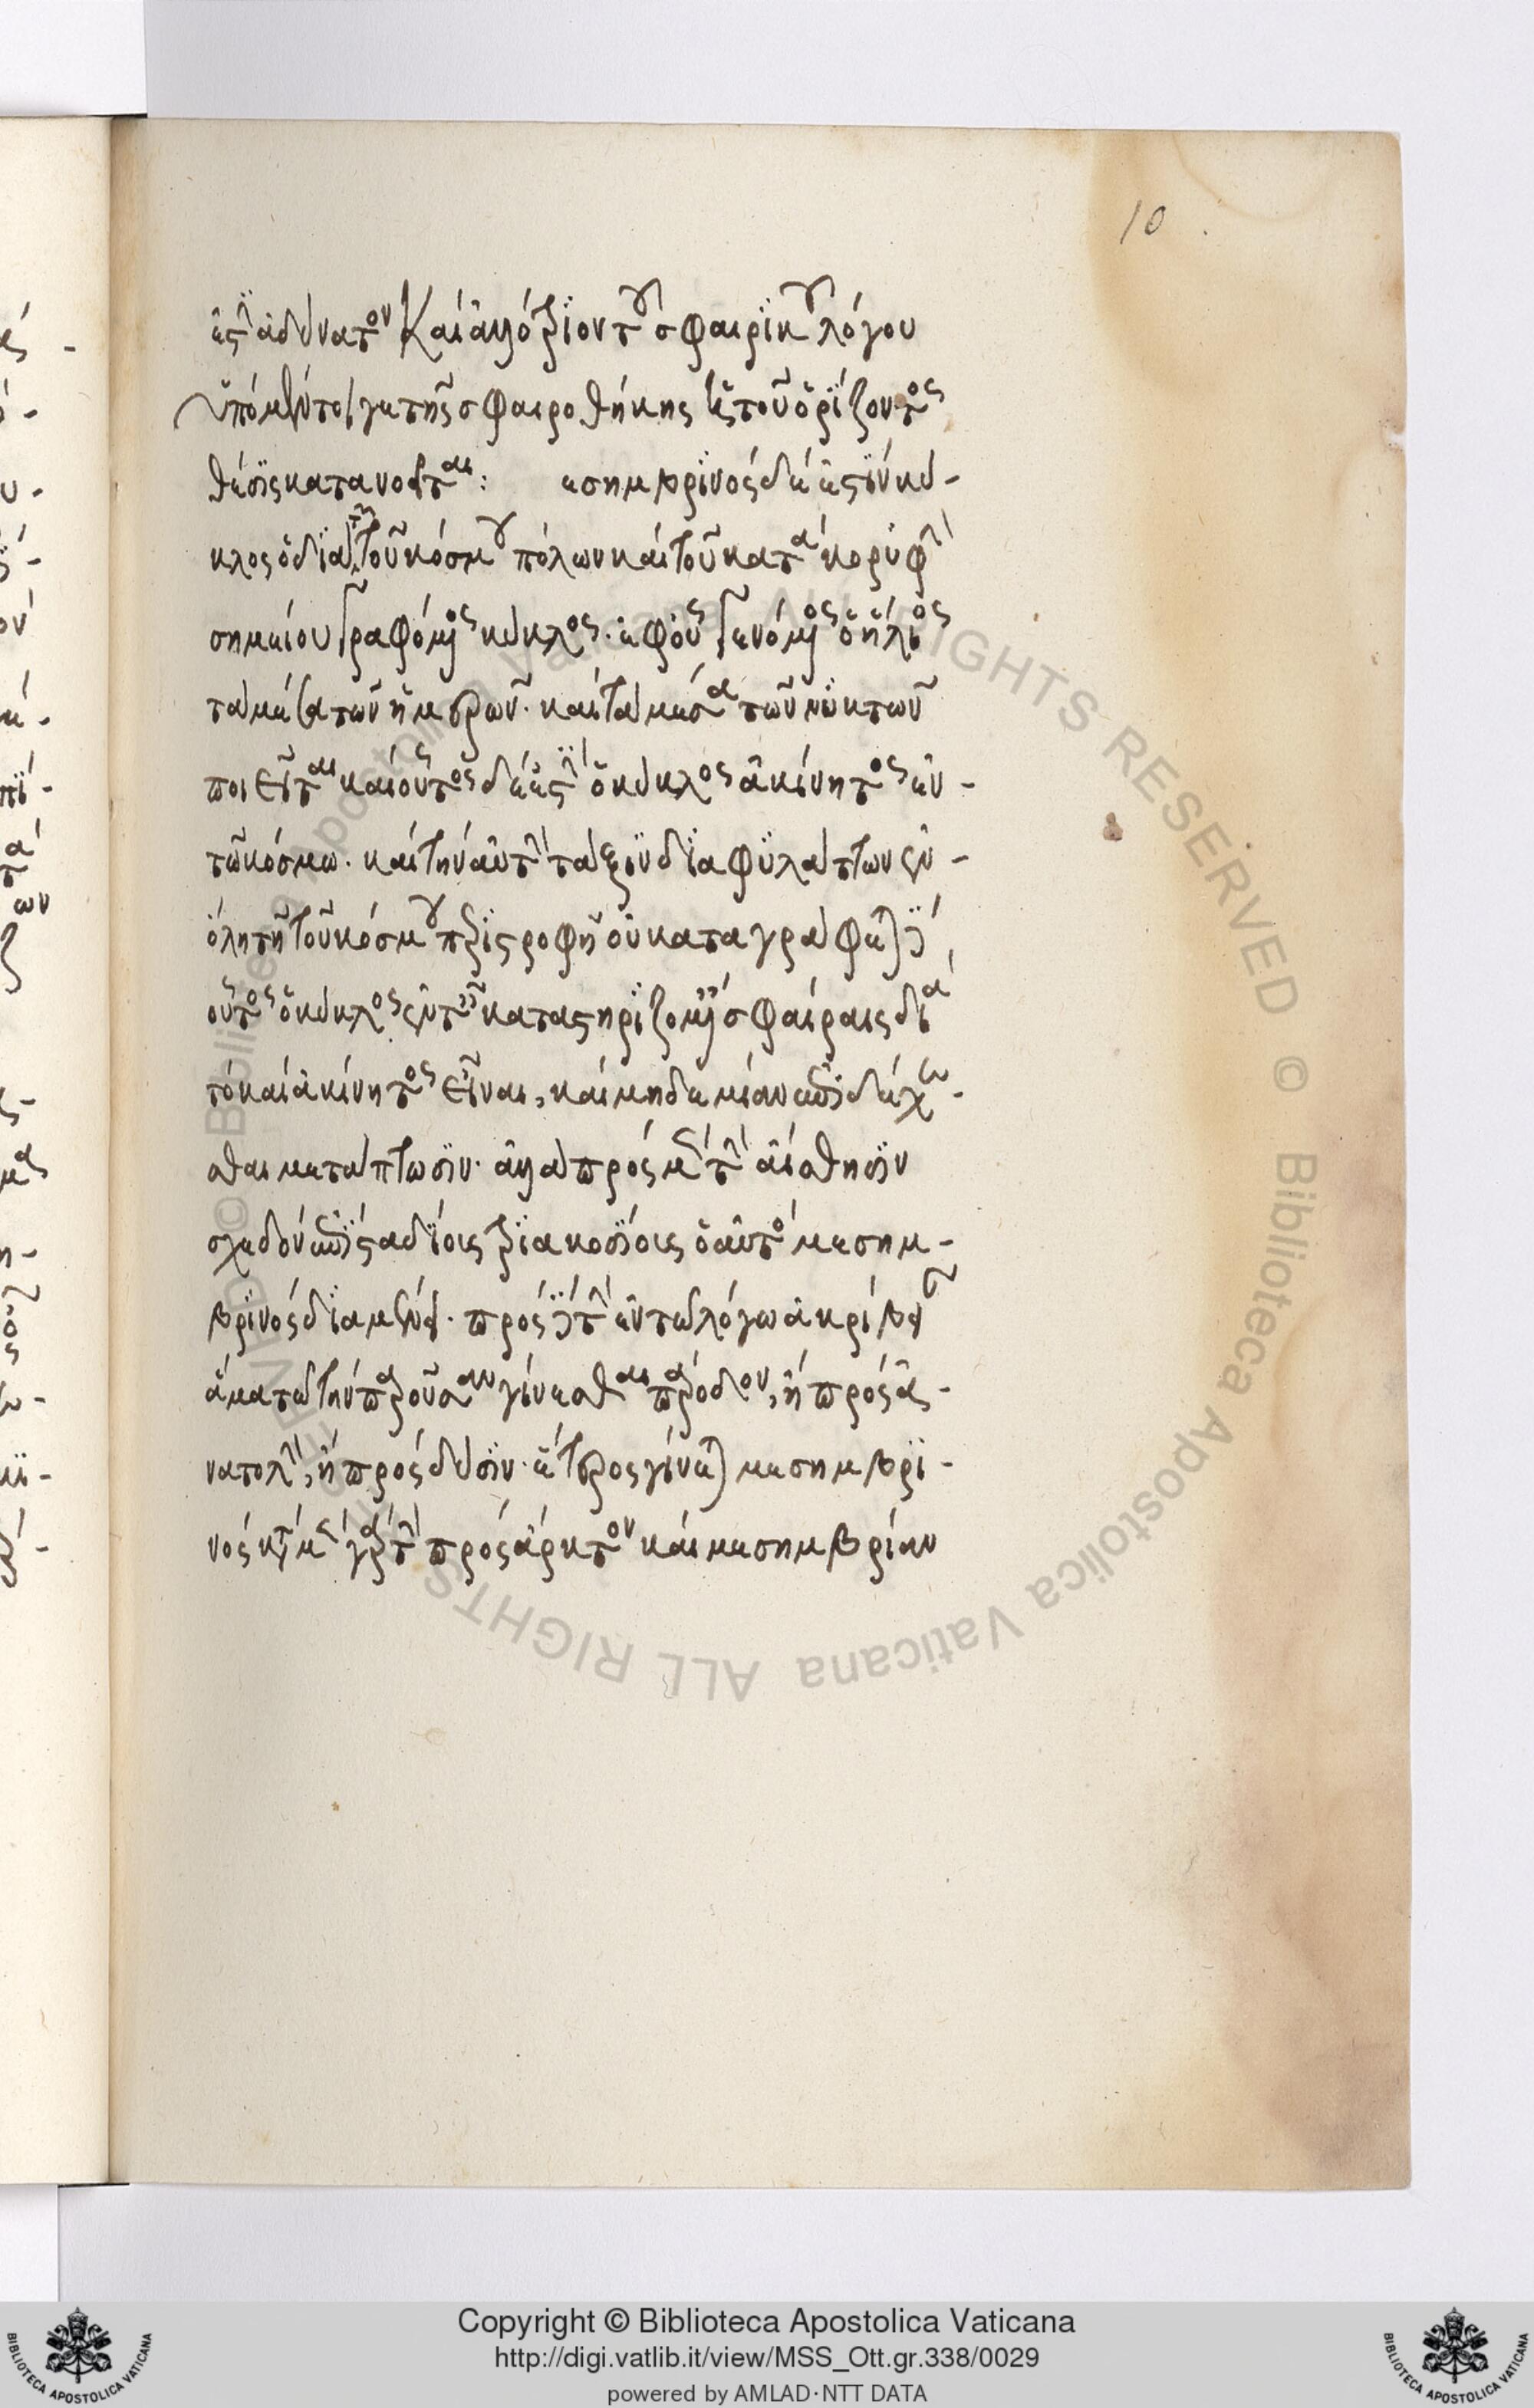 10
ἐστὶν ἀδύνατον καὶ ἀλλότριον τοῦ σφαιρικοῦ λόγου
ὑπὸ μέντοι γε τῆς σφαιροθήκης ἡ τοῦ ὁρίζοντος
θέσις κατανοεῖται: εσημβρινὸς δέ ἐστιν κύ-
κλος ὁ διὰ τῶν τοῦ κόσμου πόλων καὶ τοῦ κατὰ κορυφὴν
σημείου γραφόμενος κύκλος. ἐφ' οὗ γενόμενος ὁ ἥλιος
τὰ μέσα τῶν ἡμερῶν. καὶ τὰ μέσα τῶν νυκτῶν
ποιεῖται καὶ οὗτος δέ ἐστιν ὁ κύκλος ἀκίνητος ἐν-
τῷ κόσμω. καὶ τὴν αὐτὴν τάξιν διαφυλάττων ἐν-
ὅλη τῆ τοῦ κόσμου περιστροφῆ οὐ καταγράφεται δὲ
οὗτος ὁ κύκλος ἐν ταῖς καταστηριζομέναις σφαίραις διὰ
τὸ καὶ ἀκίνητος εἶναι, καὶ μηδεμίαν ἐπιδέχε-
σθαι μετάπτωσιν. ἀλλὰ πρὸς μὲν τὴν αἴσθησιν
σχεδὸν ἐπὶ σταδίοις τριακοσίοις ὁ αὐτὸς μεσημ-
βρινὸς διαμένει. πρὸς δὲ τὴν ἐν τῷ λόγω ἀκρίβειαν
ἅμα τῷ τὴν παροῦσαν γίνεσθαι πάροδον, ἢ πρὸς ἀ-
νατολὴν, ἢ πρὸς δύσιν. ἕτερος γίνεται μεσημβρι-
νὸς κατὰ μὲν γὰρ τὴν πρὸς ἄρκτον καὶ μεσημβρίαν
Copyright © Biblioteca Apostolica Vaticana
http://digi.vatlib.it/view/MSS_Ott.gr.338/0029
powered by AMLAD·NTT DATA